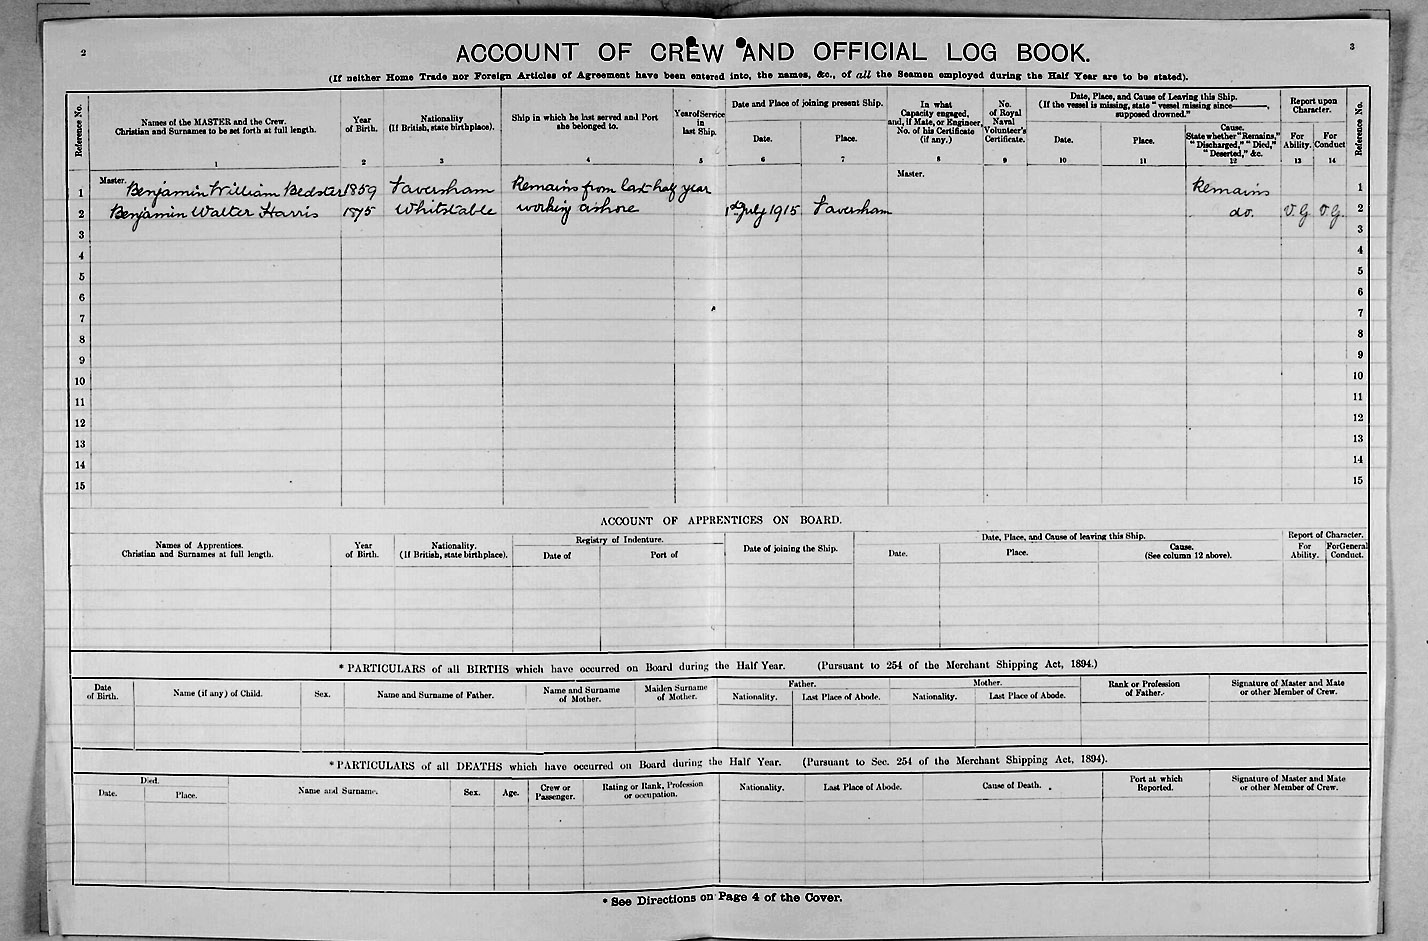 2
3
ACCOUNT OF CREW AND OFFICIAL LOG BOOK.
(If neither Home Trade nor Foreign Articles of Agreement have been entered into, the names, &c., of all the Seamen employed during the Half Year are to be stated).
Reference No.
Names of the MASTER and the Crew.
Christian and Surnames to be set forth at full length.
1
Year
of Birth.
2
Nationality
(If British, state birthplace).
3
Ship in which he last served and Port
she belonged to.
4
Year of Service
in
last Ship.
5
Date and Place of joining present Ship.
Date.
6
Place.
7
In what
Capacity engaged,
and, if Mate, or Engineer,
No. of his Certificate
(if any.)
8
No.
of Royal
Naval
Volunteer's
Certificate.
9
Date, Place, and Cause of Leaving this Ship.
(If the vessel is missing, state "vessel missing since———,
supposed drowned."
Date.
10
Place.
11
Cause.
State whether "Remains,"
"Discharged," "Died,"
"Deserted," &c.
12
Report upon
Character.
For
Ability.
13
For
Conduct
14
Reference No.
1 Master. Benjamin William Bedster 1859 Faversham Remains from last half year Master. Remains 1
2 Benjamin Walter Harris 1875 Whitstable working ashore 1st July 1915 Faversham do. V.G. V.G. 2
3 3
4 4
5 5
6 6
7 7
8 8
9 9
10 10
11 11
12 12
13 13
14 14
15 15
ACCOUNT OF APPRENTICES ON BOARD.
Names of Apprentices.
Christian and Surnames at full length.
Year
of Birth.
Nationality.
(If British, state birthplace).
Registry of Indenture.
Date of
Port of
Date of joining the Ship.
Date, Place, and Cause of leaving this Ship.
Date.
Place.
Cause.
(See column 12 above).
Report of Character.
For
Ability.
For General
Conduct.
* PARTICULARS of all BIRTHS which have occurred on Board during the Half Year. (Pursuant to 254 of the Merchant Shipping Act, 1894.)
Date
of Birth.
Name (if any) of Child.
Sex.
Name and Surname of Father.
Name and Surname
of Mother.
Maiden Surname
of Mother.
Father.
Nationality.
Last Place of Abode.
Mother.
Nationality.
Last Place of Abode.
Rank or Profession
of Father.
Signature of Master and Mate
or other Member of Crew.
* PARTICULARS of all DEATHS which have occurred on Board during the Half Year. (Pursuant to Sec. 254 of the Merchant Shipping Act, 1894).
Died.
Date.
Place.
Name and Surname.
Sex.
Age.
Crew or
Passenger.
Rating or Rank, Profession
or occupation.
Nationality.
Last Place of Abode.
Cause of Death.
Port at which
Reported.
Signature of Master and Mate
or other Member of Crew.
* See Directions on Page 4 of the Cover.